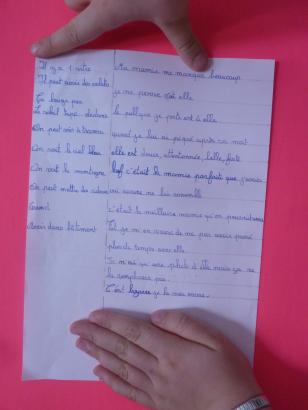 Il y a 1 vitre
Il peut avoir des volets
Ça bouge pas
Le soleil tape dedans
On peut voir à travers
On voit le ciel bleu
On voit la montagne
On peut mettre des
Grand
dans bâtiment
Ma mamie me manque beaucoup
je ne pense qu'à elle
le pull que je porte est à elle
quand je lui ai après sa mort
elle est douce, attentionnée, belle, forte
bref c'était la mamie parfaite que j'aurais
c'était la meilleure mamie qu'on pouvait avoir
Et je m'en veux de ne pas avoir passé
plus de temps avec elle.
Je n'ai qu'une photo d'elle mais ça ne
la remplacera pas.
C'est je la veux